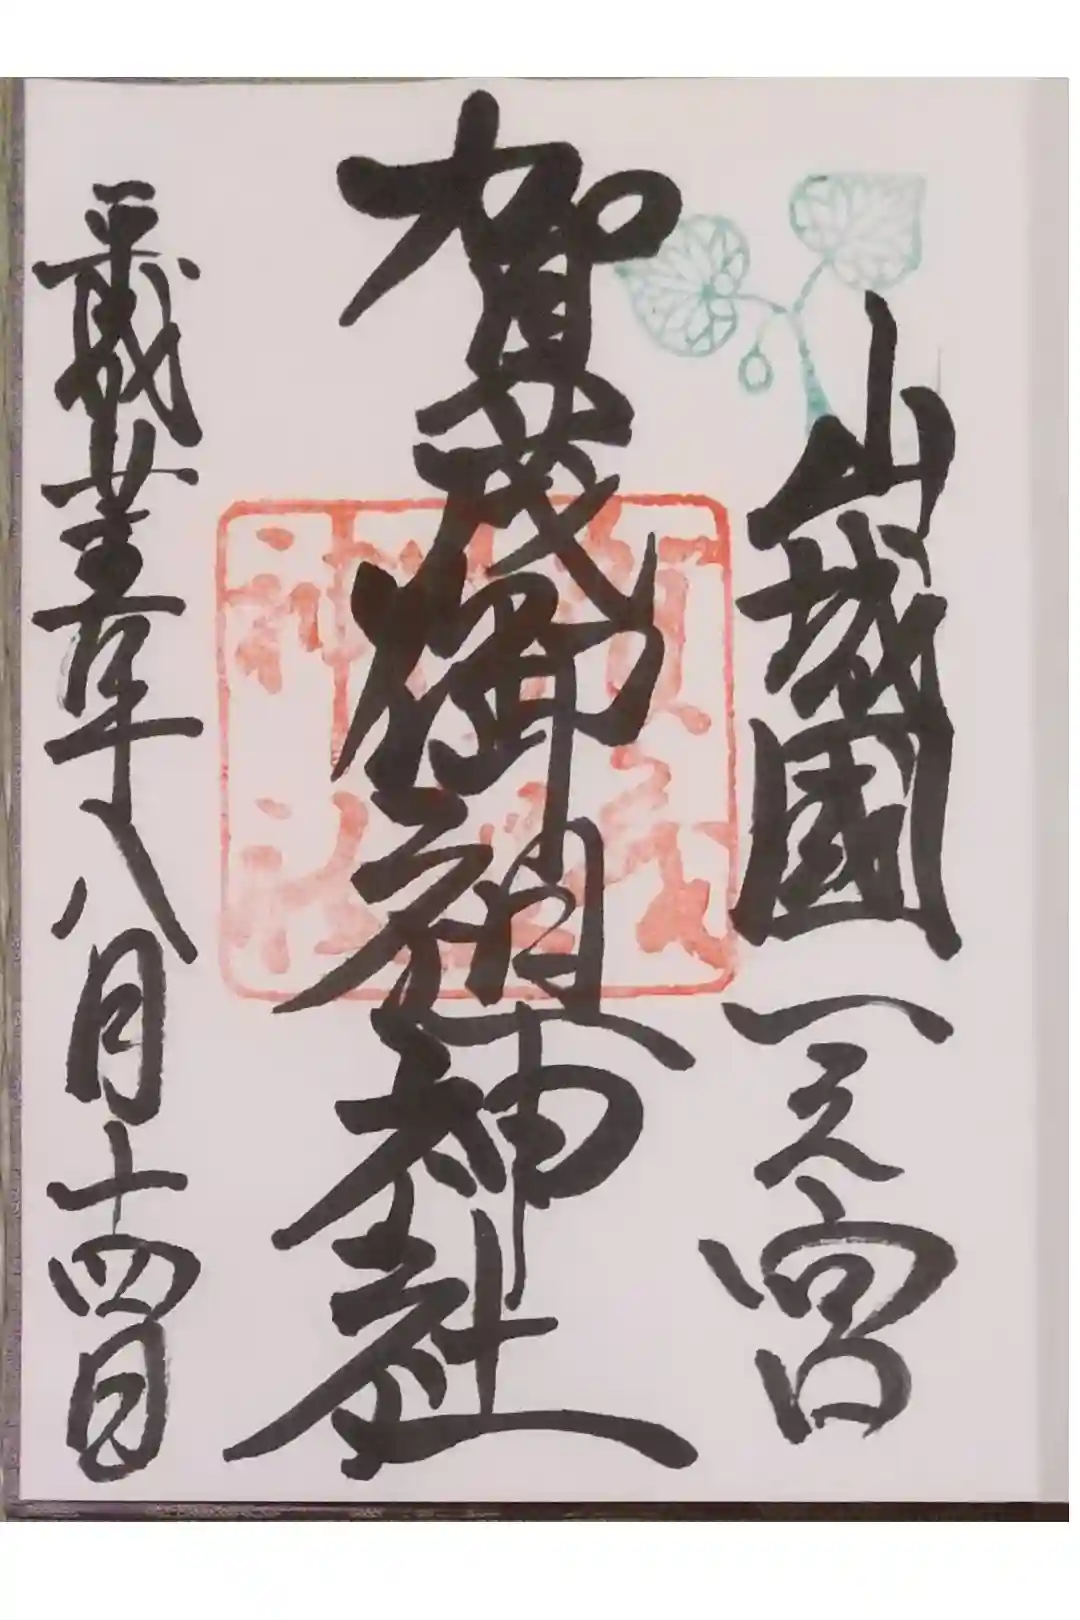 山城國一之宮
賀茂御祖神社
平成廿五年八月十四日
賀茂
神社